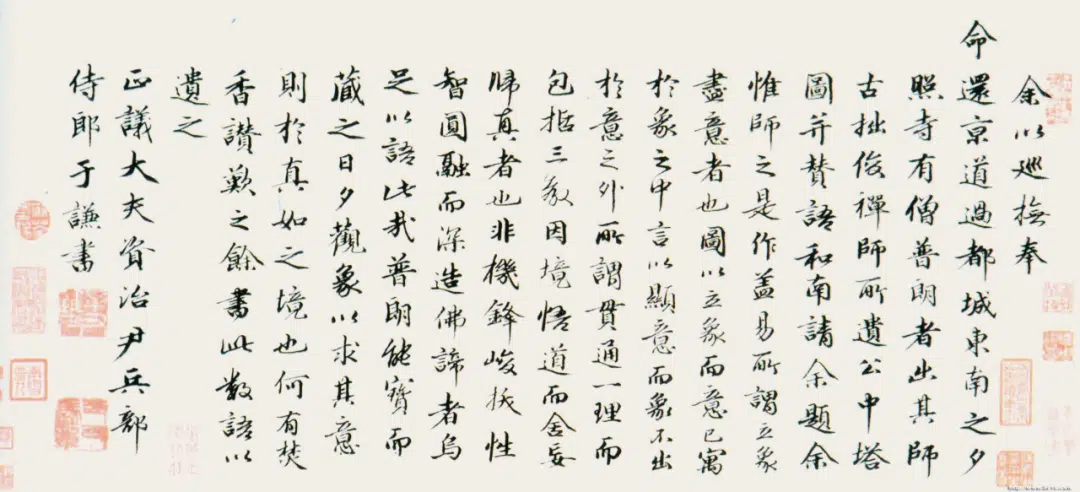 余以巡撫奉
命還京道過都城東南之夕
照寺有僧普朗者出其師
古拙俊禪師所遺公中塔
圖并贊語和南請余題余
惟師之是作盖易所謂立象
盡意者也圖以立象而意已寓
於象之中言以顯意而象不出
於意之外所謂貫通一理而
包括三教因境悟道而舍妄
歸真者也非機鋒峻捷性
智圓融而深造佛諦者烏
足以語此哉普朗能寶而
藏之日夕觀象以求其意
則於真如之境也何有焚
香讚歎之餘書此數語以
遺之
正議大夫資治尹兵部
侍郎于謙書